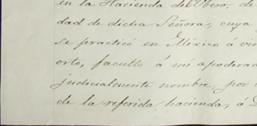 en la Hacienda de Otero, de
dad de dicha Señora, cuya
se practicó en México á vir
orte, faculto á mi apoderad
judicialmente nombre, por
de la referida hacienda, á